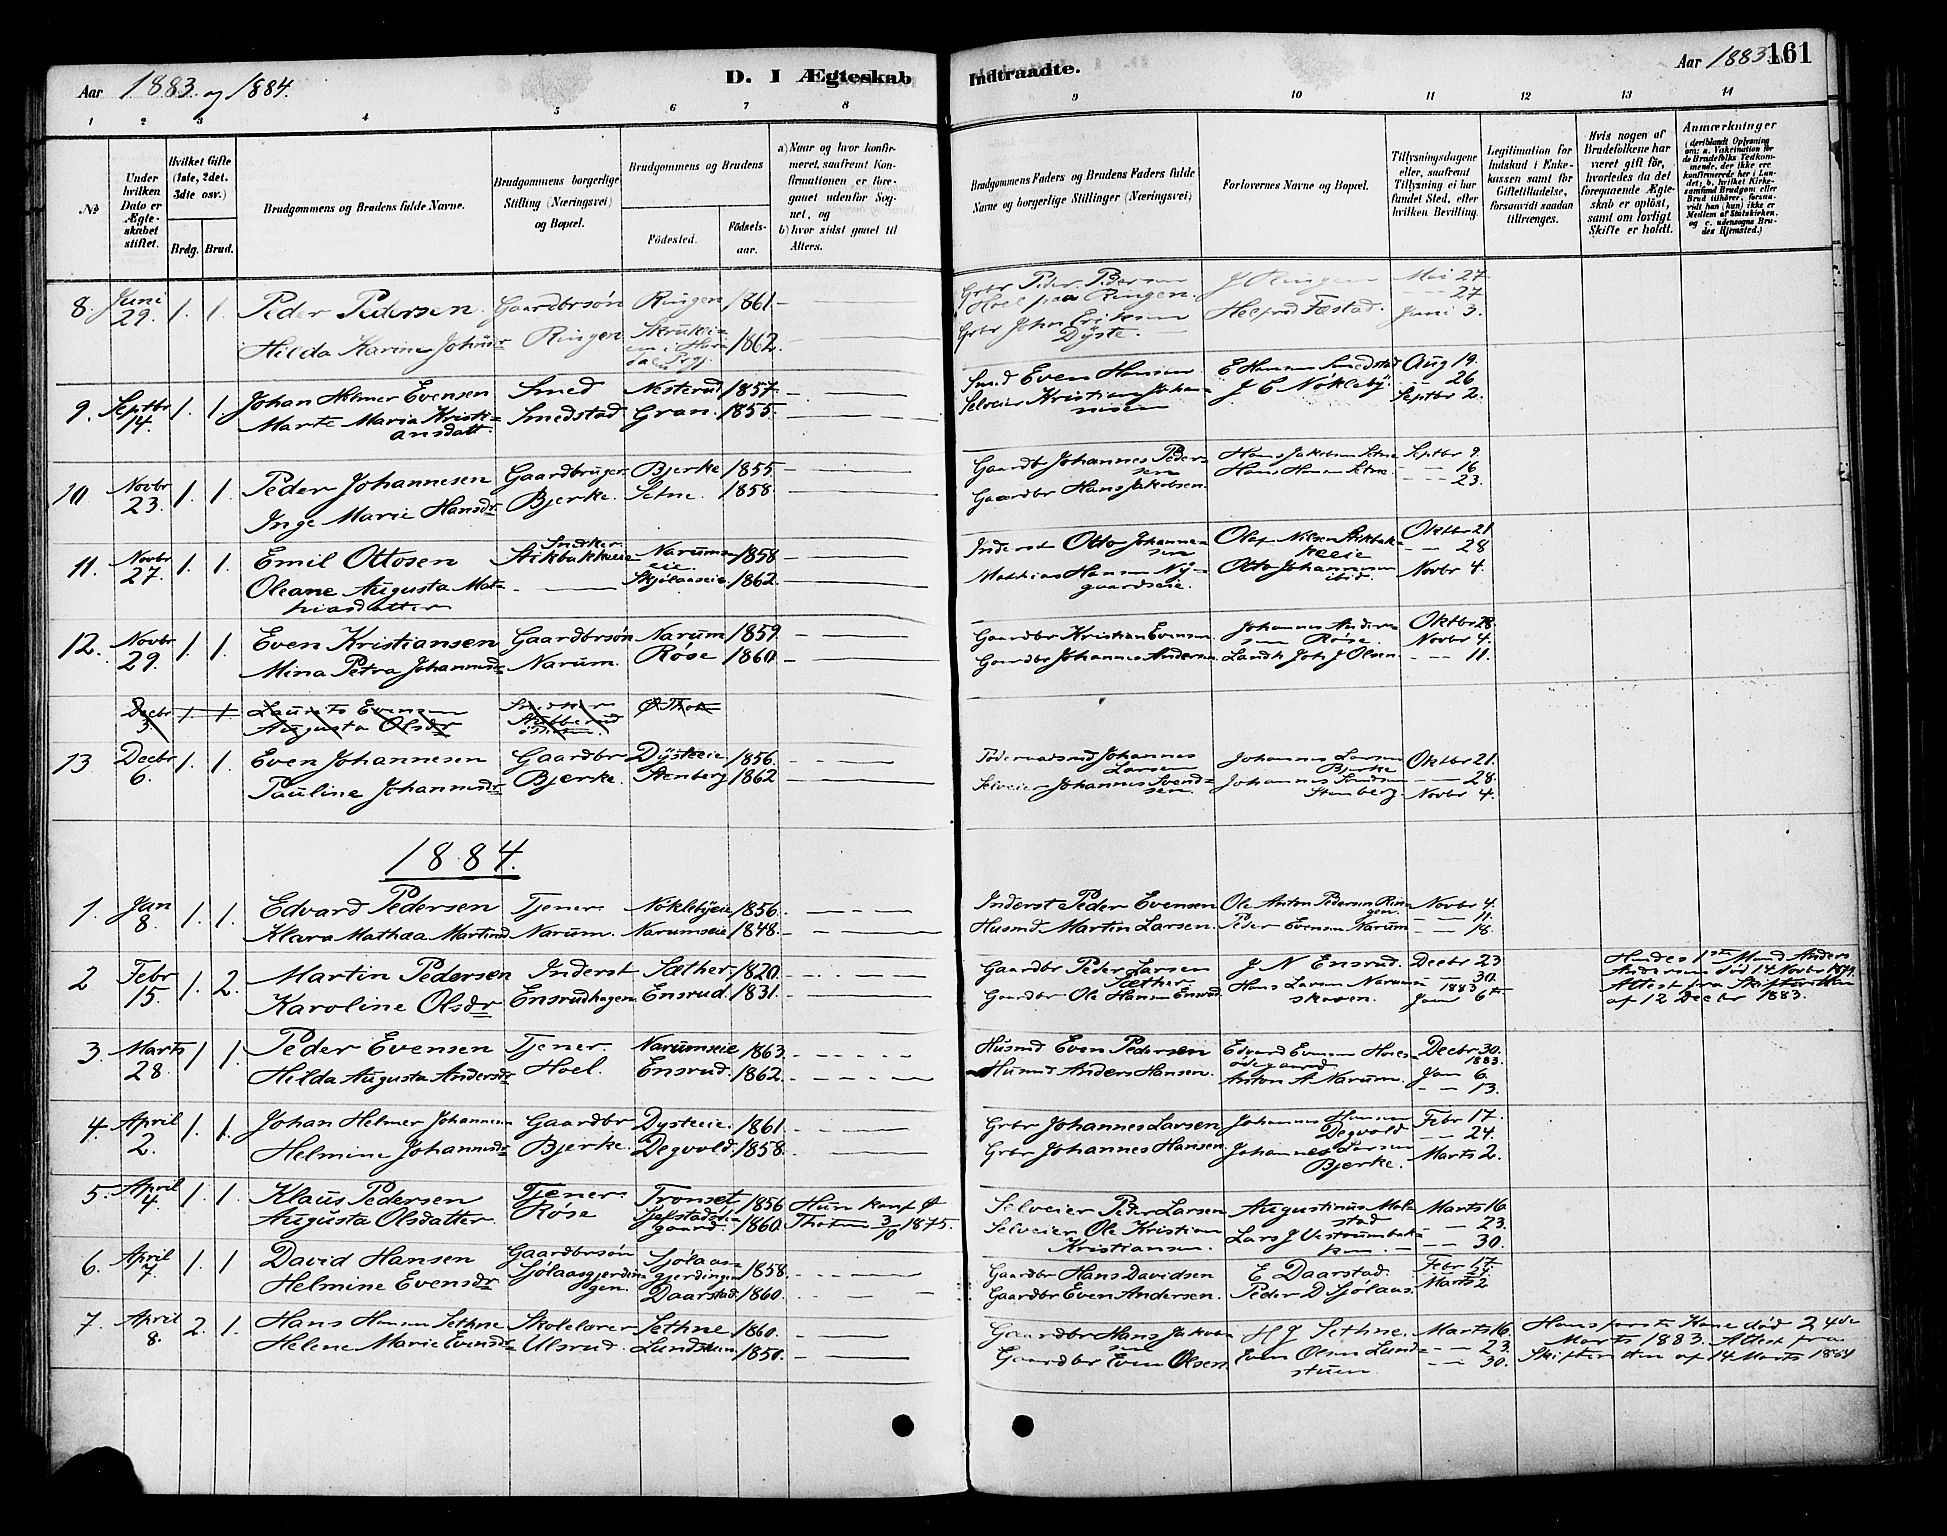 Aar 1883 og 1884.
D. I Ægteskab
Indtraadte.
Aar 1883
161
1 2 3 4 5 6 7 8 9 10 11 12 13 14
№
Under hvilken Dato er Ægteskabet stiftet.
Hvilket Gifte (1ste, 2det, 3die osv.)
Brdg. Brud.
Brudgommens og Brudens fulde Navne.
Brudgommens borgerlige Stilling (Næringsvei) og Bopæl.
Brudgommens og Brudens
Födested.
Födselsaar.
a) Naar og hvor konfirmeret, saafremt Konfirmationen er foregaaet udenfor Sognet, og
b) hvor sidst gaaet til Alters.
Brudgommens Faders og Brudens Faders fulde Navne og borgerlige Stillinger (Næringsvei)
Forlovernes Navne og Bopæl.
Tillysningsdagene eller, saafremt Tillysning ei har fundet Sted, efter hvilken Bevilling.
Legitimation for Indskud i Enkekassen samt for Giftetilladelse, forsaavidt saadan tiltrænges.
Hvis nogen af Brudefolkene har været gift för, hvorledes da det foregaaende Ægteskab er oplöst, samt om lovligt Skifte er holdt.
Anmærkninger
(deriblandt Oplysning om: a. Vakcination for de Brudefolks Vedkommende, der ikke ere konfirmerede her i Landet; b. hvilket Kirkesamfund Brudgom eller Brud tilhörer, forsaavidt han (hun) ikke er Medlem af Statskirken, og c. udensogns Brudes Hjemsted.)
8. Juni 29. 1. 1. Peder Pedersen Gaardbrsön Ringen 1861 Grbr Peder Pedersen J Ringen Mai 27
Hoel paa Ringen. – 27
Hilda Karine Johnsdr Ringen 1862. Grbr John Eriksen Dyste. Helfred Fæstad. Juni 3.
9. Septbr 14. 1. 1. Johan Helmer Evensen Smed Nesterud 1857 Smed Even Hansen E Hansen Smedstad Aug 19.
– 26
Marte Maria Kristiansdatt. Smedstad Gran. 1855. Selveier Kristian Johannesen J E Nøkleby Septbr 2.
10 Novbr 23. 1. 1. Peder Johannesen Gaardbruger Bjerke 1855 Gaardbr Johannes Pedersen Hans Jakobsen Setne Septbr 9.
Inge Marie Hansdr Bjerke. Setne. 1858. Gaardbr Hans Jakobsen. Hans Hansen Setne – 16
– 23.
11. Novbr 27. 1. 1. Emil Ottosen Snedker Stikbakkeeie Narumseie. 1858 Inderst Otto Johannesen Olaf Nilsen Stikbakkeeie Oktbr 21.
– 28
Oleane Augusta Mathiasdatter Skjølaaseie 1862. Mathias Hansen Nygaardseie. Otto Johannesen ibid. Novbr 4.
12. Novbr 29. 1. 1. Even Kristiansen Gaardbrsön Narum 1859. Gaardbr Kristian Evensen Johannes Andersen Røse. Oktbr 28.
Novbr 4.
Mina Petra Johannesdr Narum. Røse 1860 Gaardbr Johannes Andersen. Landh Joh J Olsen – 11.
Decbr 3. 1. 1. Laurits Evensen Snedker Ø Thoten
Augusta Olsdr
13 Decbr 6. 1. 1. Even Johannesen Gaardbr Dysteeie 1856. Föderaadsmd Johannes Larsen Johannes Larsen Bjerke Oktbr 21.
– 28.
Pauline Johannesdr Bjerke. Stenberg 1862 Selveier Johannes Svendsen. Johannes Svendsen Stenberg. Novbr 4.
1884.
1. Jan 8. 1. 1. Edvard Pedersen Tjener Nøklebyeie 1856. Inderst Peder Evensen Ole Anton Pedersen Ringen. Novbr 4.
– 11.
Klara Mathea Martinsd Narum. Narumseie 1848. Husmd Martin Larsen. Peder Evensen Narum – 18.
2 Febr 15. 1. 2. Martin Pedersen Inderst Sæther. 1820. Gaardbr Peder Larsen Sæther J N Ensrud. Decbr 23
– 30. 1883
Karoline Olsdr Ensrudhagen Ensrud. 1831. Gaardbr Ole Hansen Ensrud. Hans Larsen Narumskoven. Jan 6te
Hendes 1ste Mand Anders Andersen död 14 Novbr Attest fra Skifteretten af 12 Decbr 1883.
3. Marts 28. 1 1. Peder Evensen Tjener Narumseie 1863. Husmd Even Pedersen Edvard Evensen Hoelsødegaard Decbr 30. 1883.
Hilda Augusta Andersdr Hoel. Ensrud. 1862. Husmd Anders Hansen. Anton A Narum. Jan 6.
– 13.
4. April 2. 1. 1. Johan Helmer Johannesen Gaardbr Dysteeie. 1861. Grbr Johannes Larsen Johannes Hansen Degvold Febr 17.
– 24.
Helmine Johannesdr Bjerke. Degvold. 1858. Grbr Johannes Hansen. Johannes Larsen Bjerke. Marts 2.
5. April 4. 1. 1. Klaus Pedersen Tjener Tronset 1856 Hun konf Ø Thoten 3/10 1875. Selveier Peder Larsen Augustinus Molstad Marts 16.
– 23.
Augusta Olsdatter Røse 1860. Selveier Ole Kristian Kristiansen. Lars J Vestrumbakken. – 30.
6. April 7. 1. 1 David Hansen Gaardbrsön Sjølaasgjerdingen 1858. Gaardbr Hans Davidsen E Daarstad. Febr 17
24.
Helmine Evensdr Sjølaasgjerdingen. Daarstad. 1860. Gaardbr Even Andersen. Peder D Sjølaas. Marts 2
7. April 8. 2. 1. Hans Hansen Sethne Skolelærer Sethne 1860. Gaardbr Hans Jakobsen H J Sethne. Marts 16.
– 23.
Helene Marie Evensdr Ulsrud. Lundstuen 1850. Gaardbr Even Olsen. Even Olsen Lundstuen – 30.
Hans forste Kone död 24de Marts 1883. Attest fra Skifteretten af 14 Marts 1884